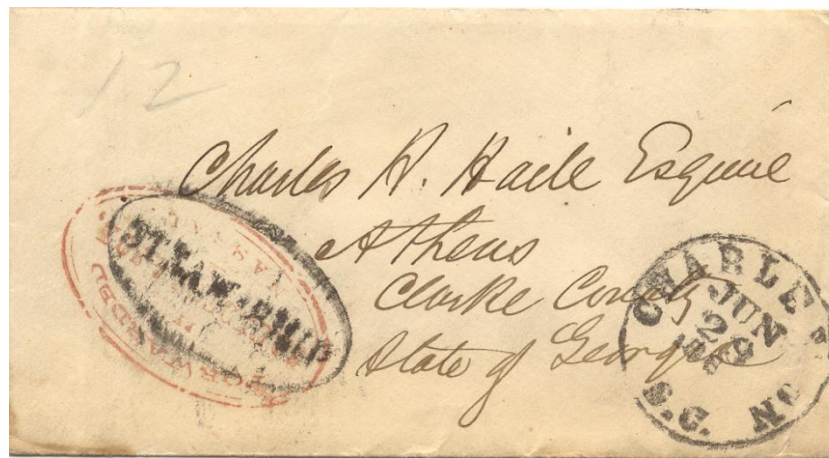 12
Charles H. Haile Esquire
Athens
Clarke County
State of Georgia
STEAM-SHIP
FORWARDED
CHARLESTON
JUN
29
S.C.